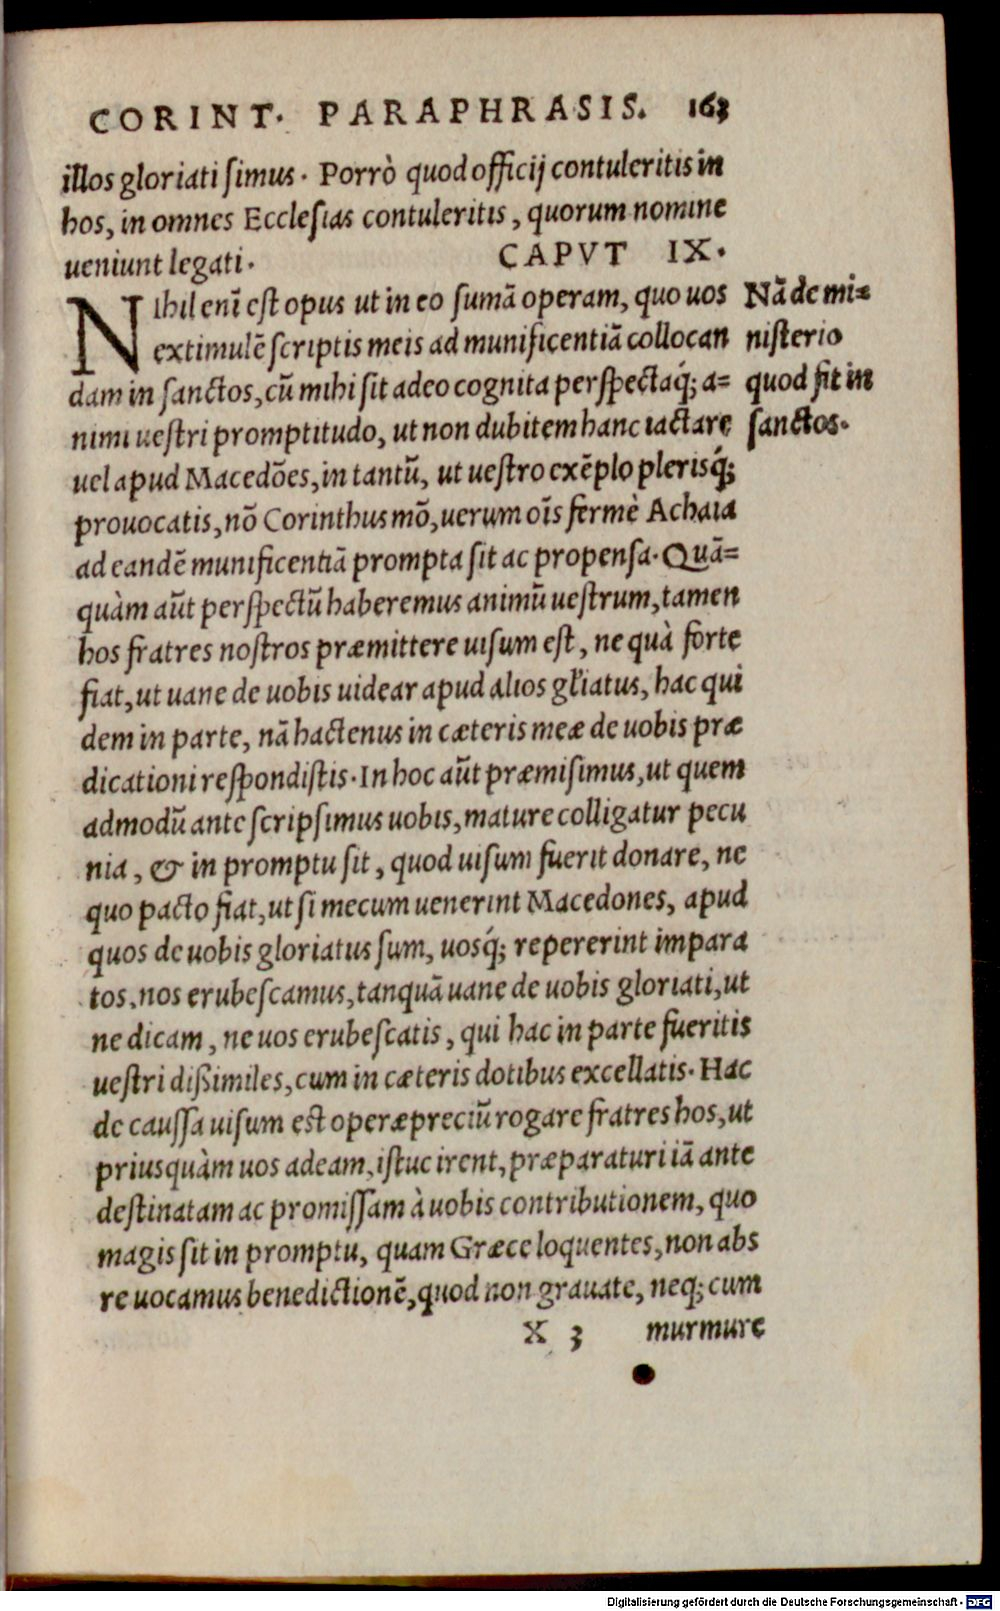 CORINT. PARAPHRASIS. 163
illos gloriati ſimus. Porrò quod officij contuleritis in
hos, in omnes Eccleſias contuleritis, quorum nomine
ueniunt legati.
CAPVT IX.
NIhil enī eſt opus ut in eo ſumā operam, quo uos
extimulē ſcriptis meis ad munificentiā collocan
dam in ſanctos, cū mihi ſit adeo cognita perſpectaq́; a=
nimi ueſtri promptitudo, ut non dubitem hanc iactare
uel apud Macedões, in tantū, ut ueſtro exēplo plerisq́;
prouocatis, nõ Corinthus mõ, uerum oīs fermè Achaia
ad eandē munificentiā prompta ſit ac propenſa. Quā=
quàm aūt perſpectū haberemus animū ueſtrum, tamen
hos fratres noſtros præmittere uiſum eſt, ne quà forte
fiat, ut uane de uobis uidear apud alios gľiatus, hac qui
dem in parte, nā hactenus in cæteris meæ de uobis præ
dicationi reſpondiſtis. In hoc aūt præmiſimus, ut quem
admodū ante ſcripſimus uobis, mature colligatur pecu
nia, & in promptu ſit, quod uiſum fuerit donare, ne
quo pacto fiat, ut ſi mecum uenerint Macedones, apud
quos de uobis gloriatus ſum, uosq́; repererint impara
tos, nos erubeſcamus, tanquā uane de uobis gloriati, ut
ne dicam, ne uos erubeſcatis, qui hac in parte fueritis
ueſtri dißimiles, cum in cæteris dotibus excellatis. Hac
de cauſſa uiſum eſt operæpreciū rogare fratres hos, ut
priusquàm uos adeam, iſtuc irent, præparaturi iā ante
deſtinatam ac promiſſam à uobis contributionem, quo
magis ſit in promptu, quam Græce loquentes, non abs
re uocamus benedictionē, quod non grauate, neq; cum
X 3 murmure
Nā de mi=
niſterio
quod fit in
ſanctos.
Digitalisierung gefördert durch die Deutsche Forschungsgemeinschaft - DFG